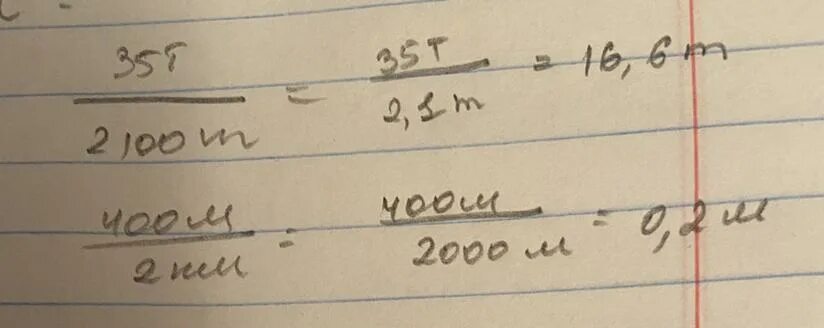 35т / 2100 т = 35т / 2,1 т = 16,6 т
400м / 2 км = 400м / 2000 м = 0,2 м